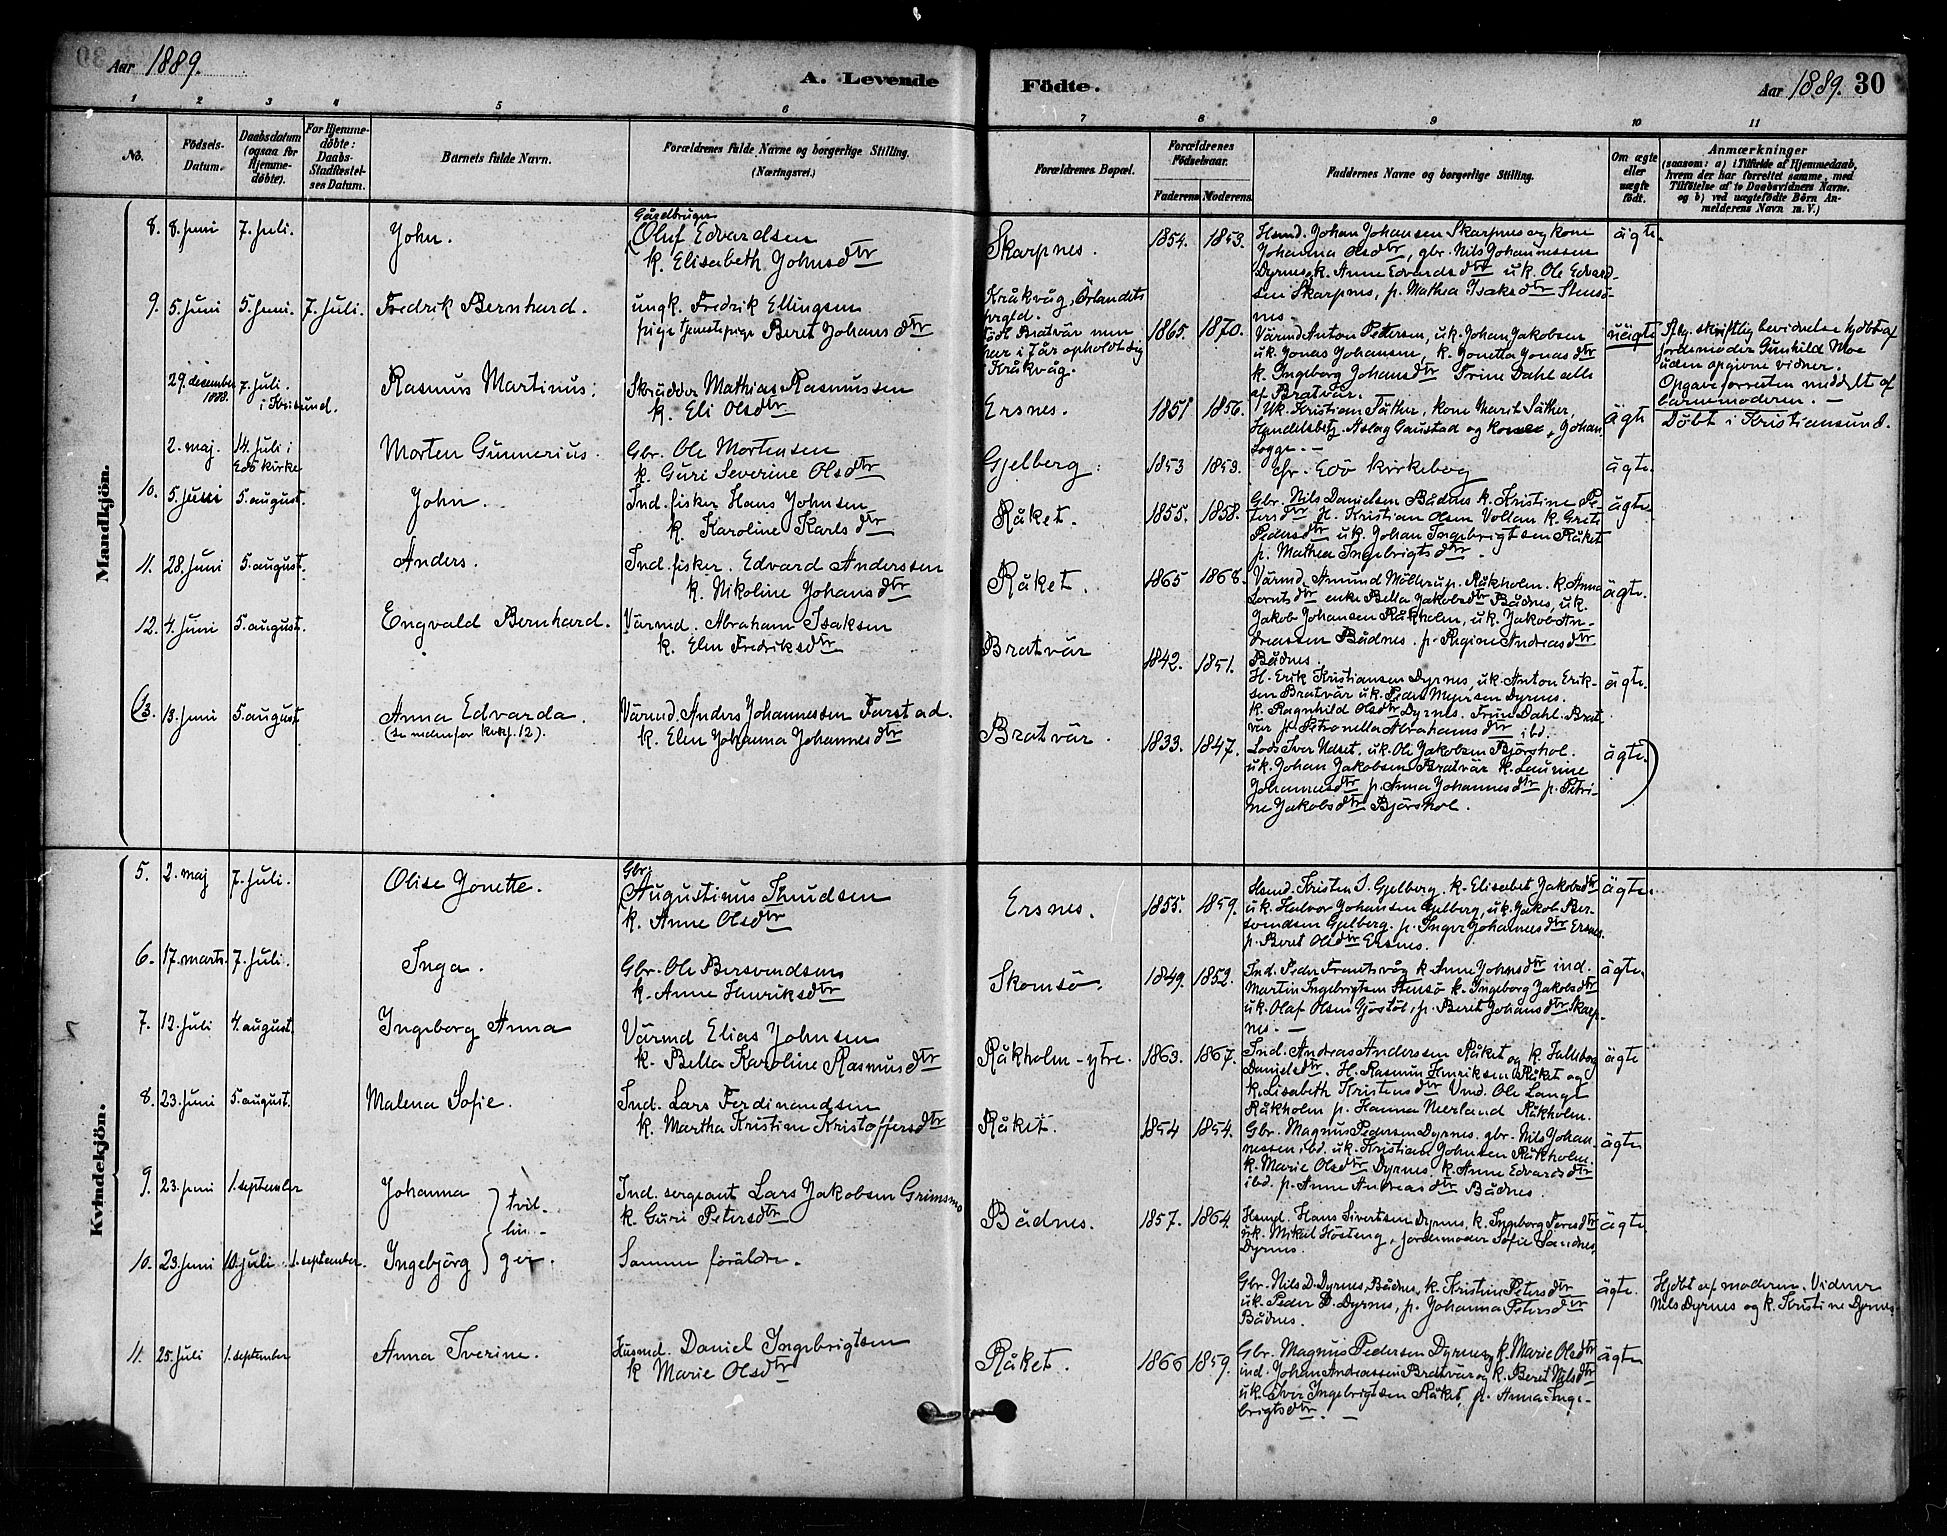 Aar 1889.
A. Levende
Födte.
Aar 1889. 30
1 2 3 4 5 6 7 8 9 10 11
No.
Födsels-Datum.
Daabsdatum (ogsaa for Hjemme-döbte).
For Hjemme-döbte: Daabs-Stadfæstel-ses Datum.
Barnets fulde Navn.
Forældrenes fulde Navne og borgerlige Stilling. (Næringsvei.)
Forældrenes Bopæl.
Forældrenes Födselsaar.
Faderens Moderens
Faddernes Navne og borgerlige Stilling.
Om ægte eller uægte födt.
Anmærkninger
(saasom: a) i Tilfælde af Hjemmedaab, hvem der har forrettet samme, med Tilföielse af to Daabsvidners Navne. og b) ved uægtefödte Börn An-melderens Navn m. V.)
Mandkjön.
8. 8. juni 7. juli. John.
Gårdbruger
Oluf Edvardsen
k. Elisabeth Johnsdtr
Skarpnes. 1854. 1853.
Hsmd. Johan Johansen Skarpnes og kone
Johanna Olsdtr, gbr. Nils Johannessen
Dyrnes, k. Anne Edvardsdtr u.k. Ole Edvard-
sen Skarpnes, p. Mathea Isaksdtr Stensö-
nes
ägte.
9. 5. juni 5. juni. 7. juli. Fredrik Bernhard.
ungk. Fredrik Ellingsen
pige tjenestepige Beret Johansdtr
Kråkvåg, Örlandets
prgld.
födt Bratvär men
har i 7 år opholdt sig
Kråkvåg.
1865. 1870.
Värmd Anton Pedersen, u.k. Johan Jakobsen
u.k. Jonas Johansen, k. Jonetta Jonasdtr
k. Ingeborg Johansdtr Trine Dahl alle
af Bratvär.
uägte
flg. skriftlig bevidnelse hjdöbt af
jordemoder Gunhild Moe
uden opgivne vidner.
Opgave forresten meddelt af
barnemoderen. —
29. december 1888. 7. juli. i Krisund. Rasmus Martinus.
Skrädder Mathias Rasmussen
k. Eli Olsdtr
Ersnes. 1851 1856.
Uk. Kristian Säther, kone Marit Säther,
Handelsbetj. Aslag Gaustad og kone, Johan
Logge. —
ägte
Döbt i Kristiansund.
2. maj. 14. juli i Edö kirke Morten Gunnerius.
Gbr. Ole Mortensen
k. Guri Severine Olsdtr
Gjelberg. 1853 1859. cfr. Edö kirkebog ägte.
10. 5. juni 5. august. John.
Ind. fisker Hans Johnsen
k. Karoline Karlsdtr
Råket. 1855. 1858.
Gbr. Nils Danielsen Bådnes k. Kristine Pe-
tersdtr H. Kristian Olsen Vollan k. Grete
Pedersdtr u.k. Johan Ingebrigtsen Råket
p. Mathea Ingebrigtsdtr.
ägte.
11. 28. juni 5. august. Anders.
Ind. fisker. Edvard Anderssen
k. Nikoline Johansdtr
Råket. 1865 1868.
Värmd. Amund Möllerup. Råkholm. k. Anna
Lorntsdtr enke Bella Jakobsdtr Bådnes, u.k.
Jakob Johansen Råkholm, u.k. Jakob An-
dreassen Bådnes. p. Regine Andreasdtr
Bådnes.
ägte.
12. 4. juni 5. august. Engvald Bernhard.
Värmd. Abraham Isaksen
k. Elen Fredriksdtr
Bratvär 1842. 1851.
H. Erik Kristiansen Dyrnes, u.k. Anton Erik-
sen Bratvär u.k. Peder Meyersen Dyrnes.
k. Ragnhild Olsdtr Dyrnes. Trine Dahl. Brat-
vär p. Petronella Abrahamsdtr ibd.
ägte.
(13. 13. juni 5. august Anna Edvarda.
(se nedenfor kvkj. 12).
Värmd. Anders Johannessen Farstad.
k. Elen Johanna Johannesdtr
Bratvär. 1833. 1847.
Lods Iver Udset, u.k. Ole Jakobsen Bjórshol.
u.k. Johan Jakobsen Bratvär k. Laurine
Johannesdtr p. Anna Johannesdtr p. Petri-
ne Jakobsdtr Bjórshol.
ägte.)
Kvindekjön.
5. 2. maj 7. juli. Olise Jonette.
Gbr.
Augustinus Knudsen
k. Anne Olsdtr
Ersnes. 1855. 1859.
Hsmd. Kristen S. Gjelberg. k. Elisabet Jakobsdtr
u.k. Halvor Johansen Gjelberg, u.k. Jakob Ber-
svendsen Gjelberg. p. Inger Johannesdtr Ersnes.
p. Beret Olsdtr Ersnes.
ägte.
6. 17. marts. 7. juli. Inga.
Gbr. Ole Bersvendsen
k. Anne Henriksdtr
Skomsö. 1849. 1852.
Ind. Peder Frantsvåg k. Anne Johnsdtr ind.
Martin Ingebrigtsen Stensö k. Ingeborg Jakobsdtr
u.k. Olaf Olsen Gjöstöl, p. Beret Johansdtr Skarp-
nes. —
ägte.
7. 12. juli 4. august. Ingeborg Anna
Värmd Elias Johnsen
k. Bella Karoline Rasmusdtr
Råkholm-ytre. 1863. 1867.
Ind. Andreas Anderssen Råket og k. Jalleborg
Danielsdtr. H. Rasmus Henriksen Råket og
k. Lisabeth Kristensdtr Vmd. Ole Langt
Råkholm p. Hanna Nerland Råkholm.
ägte
8. 23. juni 5. august. Malena Sofie.
Ind. Lars Ferdinandsen
k. Martha Kristine Kristoffersdtr
Råket. 1854 1854.
Gbr. Magnus Pedersen Dyrnes. gbr. Nils Johan-
nessen, ibd. u.k. Kristian Johnsen Råkholm.
k. Marie Olsdtr Dyrnes. k. Anne Edvardsdtr
ibd. p. Anne Andreasdtr Bådnes.
ägte
9. 23. juni 1. september Johanna tvil-
Ind. sergeant Lars Jakobsen Grimsmo
k. Guri Petersdtr
Bådnes. 1857. 1864.
Hsmd. Hans Sivertsen Dyrnes, k. Ingeborg Toresdtr
u.k. Mikal Hösteng, jordemoder Sofie Sandnes
Dyrnes.
ägte.
lin-
10. 23. juni 10. juli 1. september. Ingebjörg ger.
Samme foräldre.
Gbr. Nils D. Dyrnes, Bådnes, k. Kristine Petersdtr
u.k. Peder D. Dyrnes, p. Johanna Petersdtr
Bådnes.
ägte.
Hjdbt af moderen. Vidner
Nils Dyrnes og k. Kristine Dyrnes.
11. 25. juli 1. september Anna Iverine.
Husmd. Daniel Ingebrigtsen
k Marie Olsdtr
Råket. 1866 1859.
Gbr. Magnus Pedersen Dyrnes, k. Marie Olsdtr
ind. Johan Andreassen Bratvär og k. Beret Nilsdtr
u.k. Iver Ingebrigtsen Råket, p. Anna Inge-
brigtsdtr. —
ägte